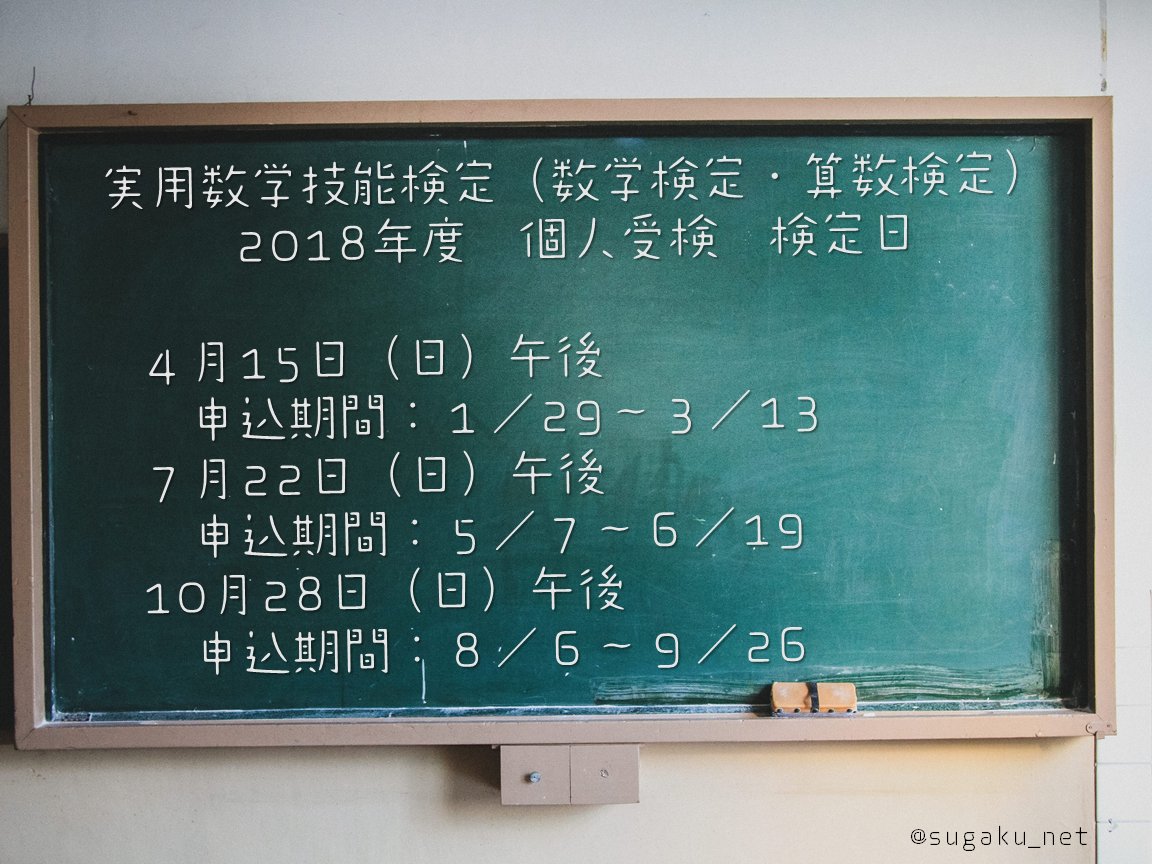 実用数学技能検定（数学検定・算数検定）
2018年度　個人受検　検定日
4月15日（日）午後
申込期間：1／29～3／13
7月22日（日）午後
申込期間：5／7～6／19
10月28日（日）午後
申込期間：8／6～9／26
@sugaku_net